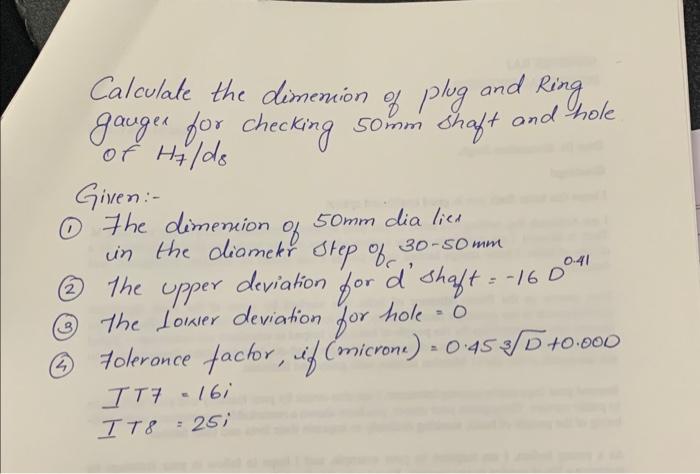 Calculate the dimension of plug and Ring
gauges for checking 50mm shaft and hole
of H7/d8
Given:-
① The dimension of 50mm dia lies
in the diameter step of 30-50mm
② The upper deviation for 'd' shaft = -16 D^0.41
③ The Lower deviation for hole = 0
④ Tolerance factor, if (microne) = 0.45 ∛D + 0.00D
IT7 = 16i
IT8 = 25i